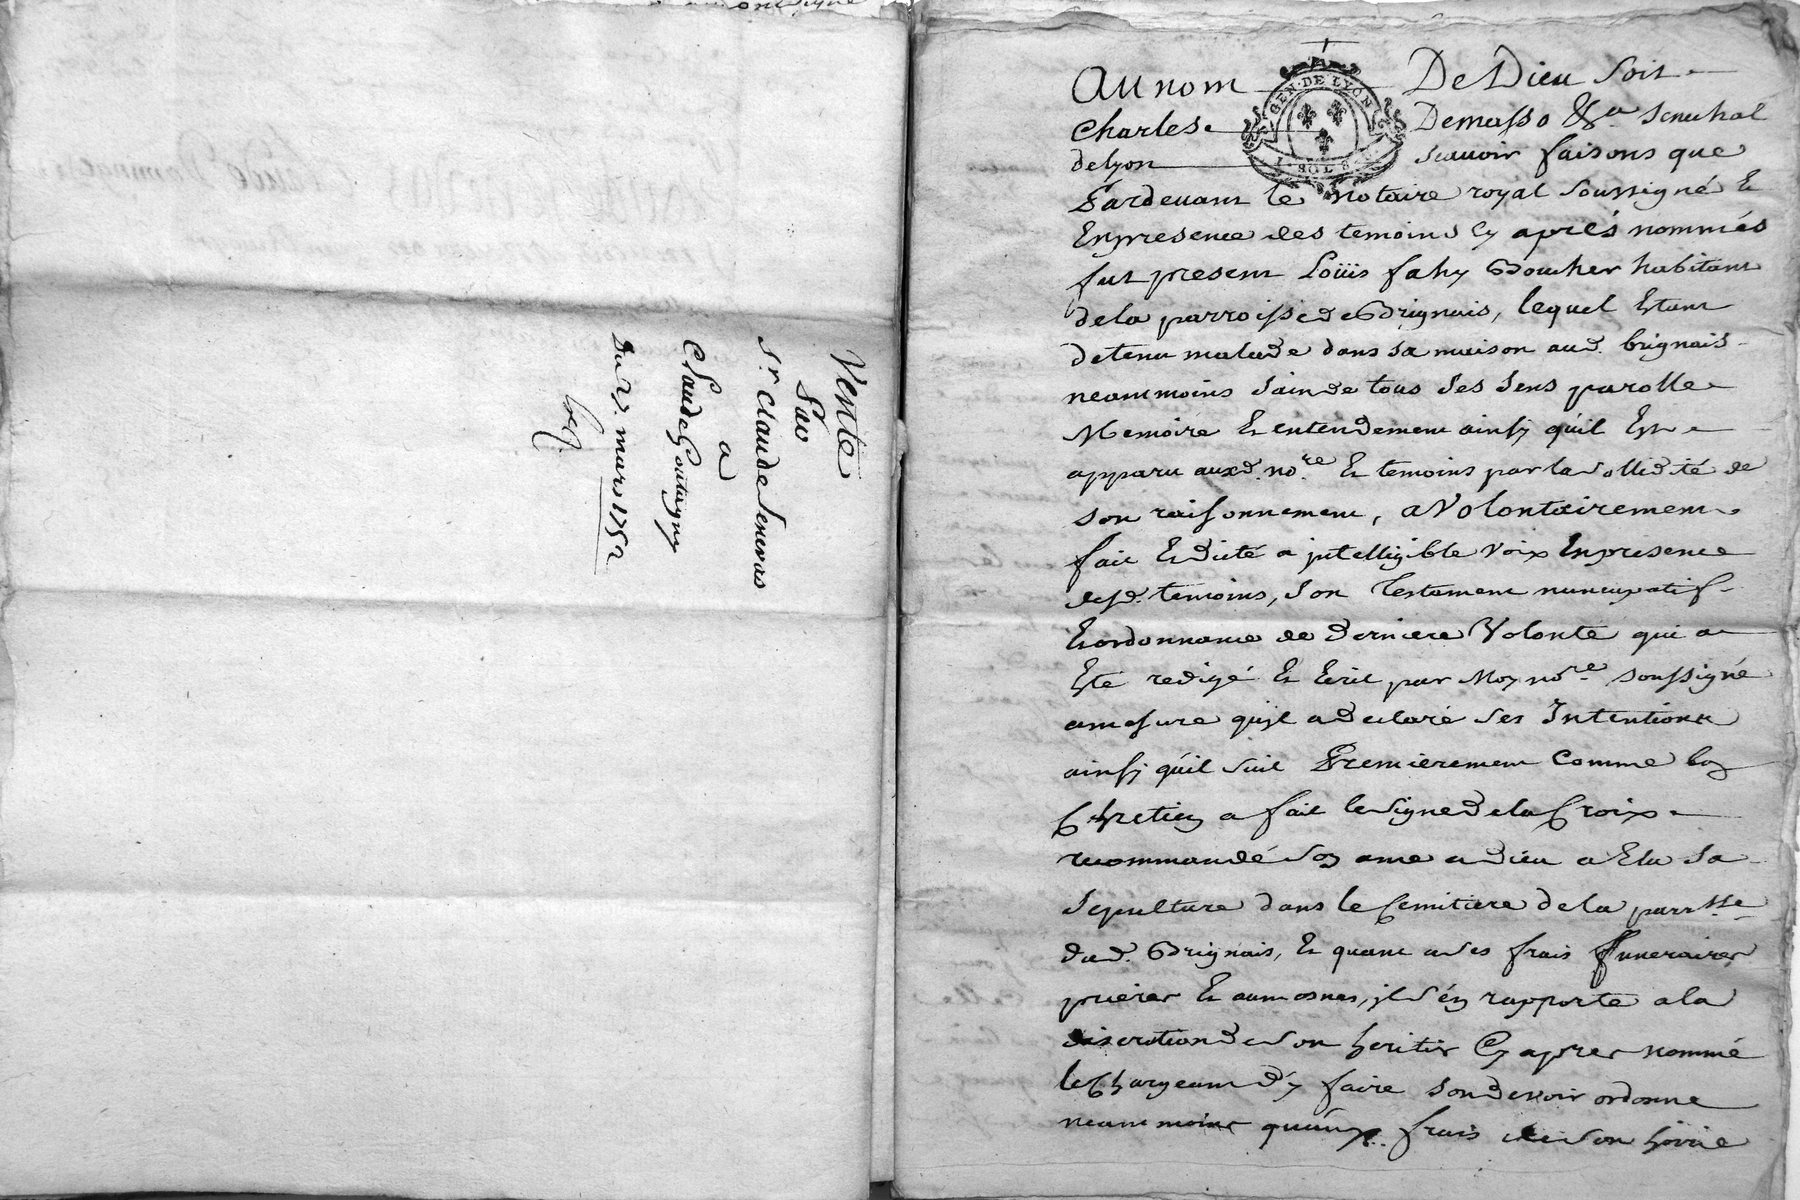 Vente
Par
Sr. Claude Seneras
a
Claude Goutagny
Du 27. mars 1752
GEN·DE LYON
1·SOL 8
Au nom De Dieu Soit
Charles Demasso &a Senechal
de lyon Scavoir faisons que
Pardevant le Notaire royal Soussigné Et
En presence des temoins Cy après nommés
fut present Loüis fahy Boucher habitant
de la parroisse de Brignais, lequel Etant
detenu malade dans Sa maison aud. brignais
neanmoins Sain de tous Ses Sens parolle
Memoire Et entendement ainsy qu'il Est
apparu auxd. nore Et temoins par la Sollidité de
Son raisonnement, a Volontairement
fait Et dicté a jntelligible Voix En presence
desd. temoins, Son Testament nuncupatif
Et ordonnance de derniere Volonté qui a
Eté redigé Et Ecrit par Moy nore Soussigné
amesure qu'jl a declaré Ses Intentions
ainsy qu'il Suit Premierement Comme boy
Chretien a fait le Signe de la Croix
recommandé Son ame a Dieu a Elu Sa
Sepulture dans le Cemitiere de la parrsse
dud. Brignais, Et quant a Ses frais funeraires
prieres Et aumosnes, jl S'en rapporte a la
discretion de Son heritier Cy apres nommé
le Chargeant d'y faire Son devoir ordonne
neanmoins qu'aux frais de Son hoirie